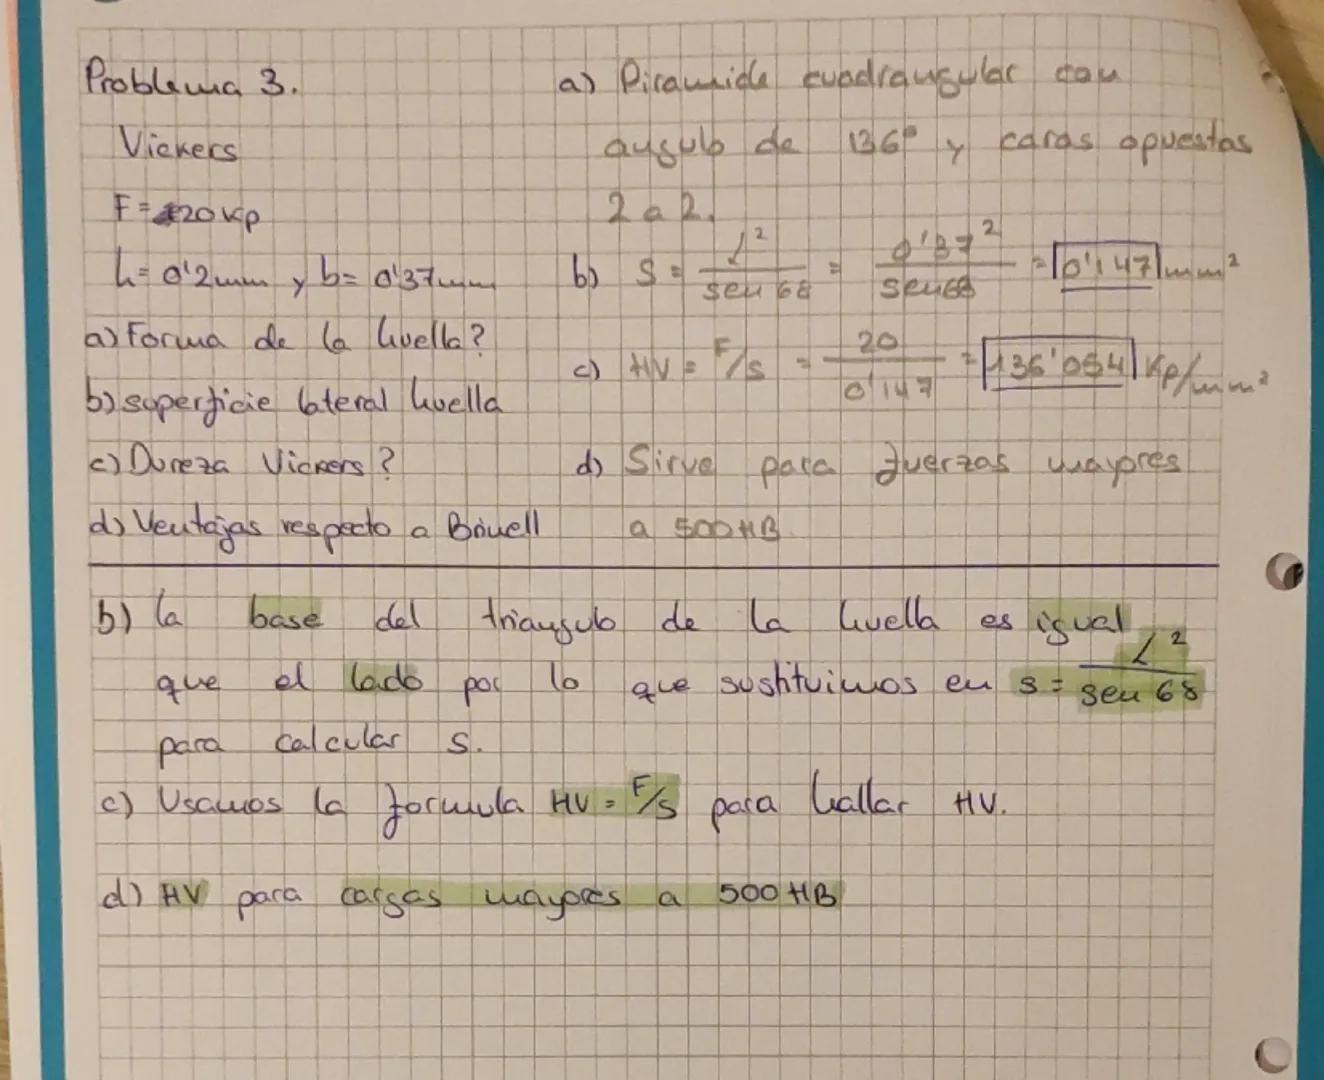 Problema 3.
Vickers
F = 20 Kp
h = 0'2mm y b = 0'37mm
a) Forma de la huella?
b) superficie lateral huella
c) Dureza Vickers?
d) Ventajas respecto a Brinell
a) Piramide cuadrangular con
angulo de 136º y caras opuestas
2 a 2.
b) S = l² / sen 68 = 0'37² / sen68 = 0'147 mm²
c) HV = F/S = 20 / 0'147 = 136'054 Kp/mm²
d) Sirve para fuerzas mayores
a 500 HB
b) la base del triangulo de la huella es igual
que el lado por lo que sustituimos en s = L² / sen 68
para calcular s.
c) Usamos la formula HV = F/S para hallar HV.
d) HV para cargas mayores a 500 HB